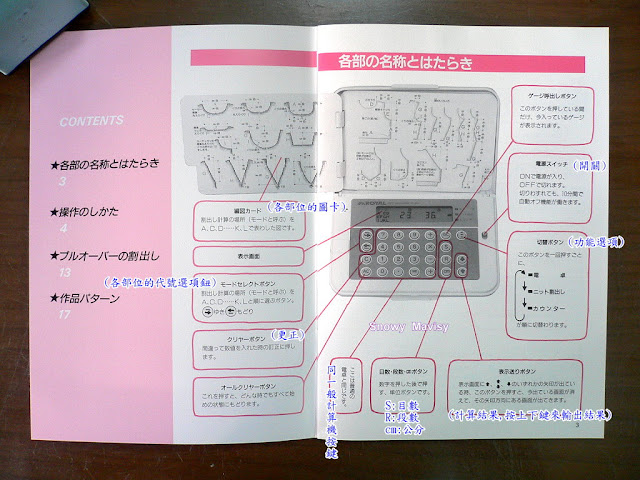 各部の名称とはたらき
CONTENTS
★各部の名称とはたらき
3
★操作のしかた
4
★プルオーバーの割出し
13
★作品パターン
17
編図カード
(各部位的圖卡)
割出し計算の場所(モードと呼ぶ)を
A、C、D……K、Lで表わした図です。
表示画面
モードセレクトボタン
(各部位的代號選項鈕)
割出し計算の場所(モードと呼ぶ)を
A、C、D……K、Lと順に選ぶボタン。
ゆき もどり
クリヤーボタン
(更正)
間違って数値を入れた時の訂正に押し
ます。
オールクリヤーボタン
これを押すと、どんな時でもすべて始
めの状態にもどります。
ゲージ呼出しボタン
このボタンを押している間
だけ、今入っているゲージ
が表示されます。
電源スイッチ
(開關)
ONで電源が入り、
OFFで切れます。
切りわすれても、10分間で
自動オフ機能が働きます。
切替ボタン
(功能選項)
このボタンを一回押すごと
に、
電 卓
ニット割出し
カウンター
が順に切替わります。
Snowy Mavisy
ここは普通の
電卓と同じです。
同一般計算機按鍵
目数・段数・cmボタン
数字を押した後で押
す、単位ボタンです。
S:目數
R:段數
cm:公分
表示送りボタン
のいずれかの矢印が出てい
る時、このボタンを押すと、今出ている画面が消
えて、その矢印方向にある画面が出てきます。
(計算結果,按上下鍵來輸出結果)
3